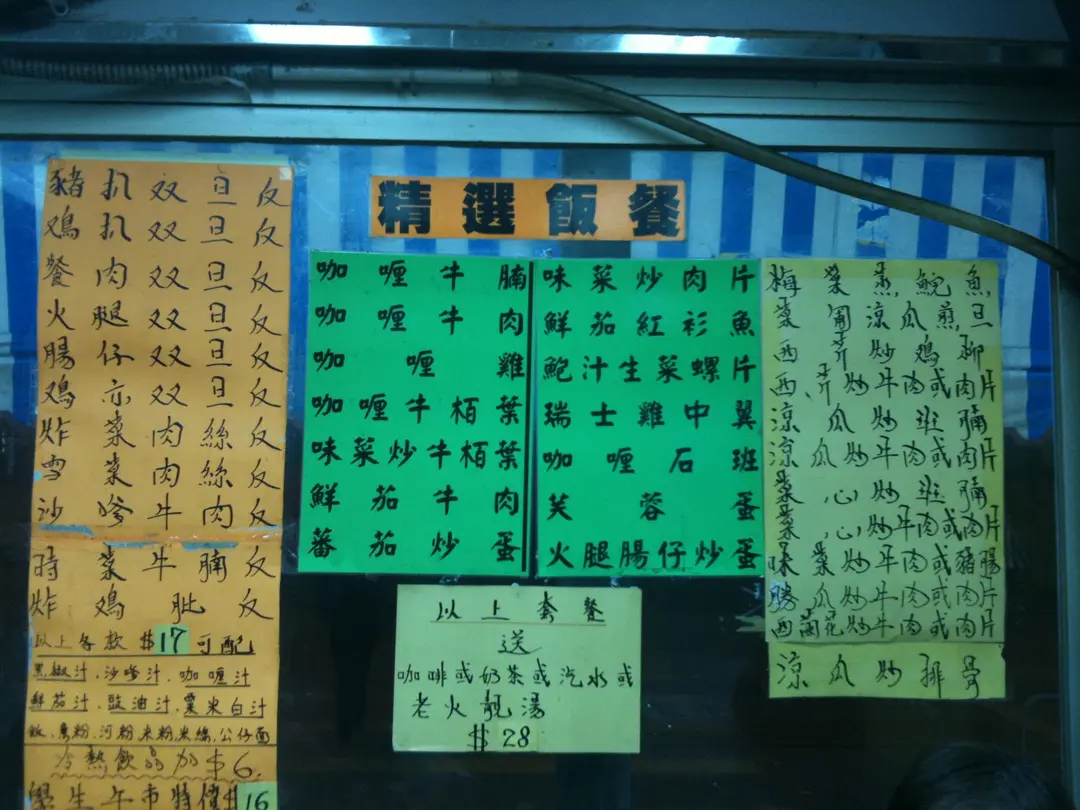 精選飯餐
豬扒双旦反
鸡扒双旦反
餐肉双旦反
火腿双旦反
腸仔双旦反
鸡亦双旦反
炸菜肉絲反
雪菜肉絲反
沙嗲牛肉反
時菜牛腩反
炸鸡肶反
以上各款$17可配
黑椒汁.沙嗲汁.咖喱汁
鮮茄汁.豉油汁.粟米白汁
飯.意粉.河粉.米粉.米線.公仔面
冷熱飲品加$6.
學生午市特價$16
咖喱牛腩
咖喱牛肉
咖喱雞
咖喱牛栢葉
味菜炒牛栢葉
鮮茄牛肉
蕃茄炒蛋
味菜炒肉片
鮮茄紅衫魚
鮑汁生菜螺片
瑞士雞中翼
咖喱石班
芙蓉蛋
火腿腸仔炒蛋
梅菜蒸鯇魚
菜甫涼瓜煎旦
西芹炒鸡柳
西芹炒牛肉或肉片
涼瓜炒班腩
涼瓜炒牛肉或肉片
菜心炒班腩
菜心炒牛肉或肉片
味菜炒牛肉或豬腸
勝瓜炒牛肉或肉片
西蘭花炒牛肉或肉片
涼瓜炒排骨
以上套餐
送
咖啡或奶茶或汽水或
老火靚湯
$28